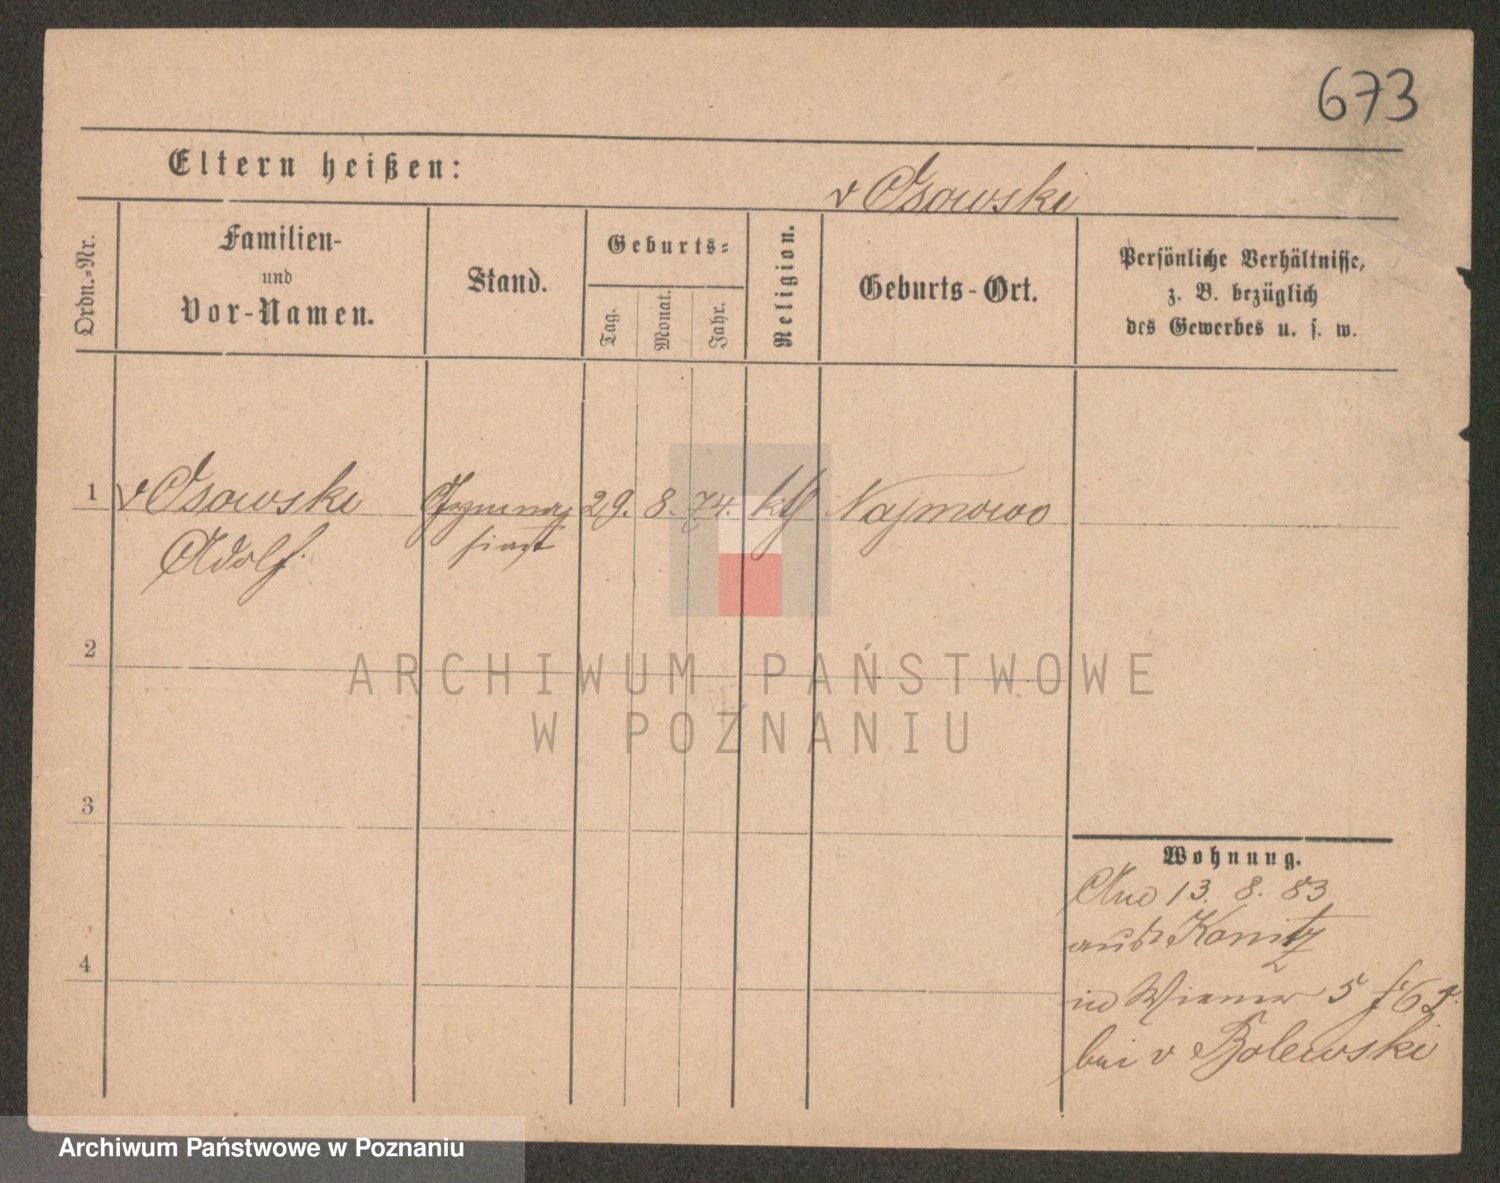 673
Eltern heißen:
v Osowski
Ordn.-Nr.
Familien-
und
Vor-Namen.
Stand.
Geburts-
Tag.
Monat.
Jahr.
Religion.
Geburts-Ort.
Persönliche Verhältnisse,
z. B. bezüglich
des Gewerbes u. s. w.
1 v Osowski Gymna 29. 8. 74. kth Najmowo
Adolf. siast
2
ARCHIWUM PAŃSTWOWE
W POZNANIU
3
Wohnung.
13. 8. 83
aus Konitz
4
in Wiener 5
bei v Bolewski
Archiwum Państwowe w Poznaniu